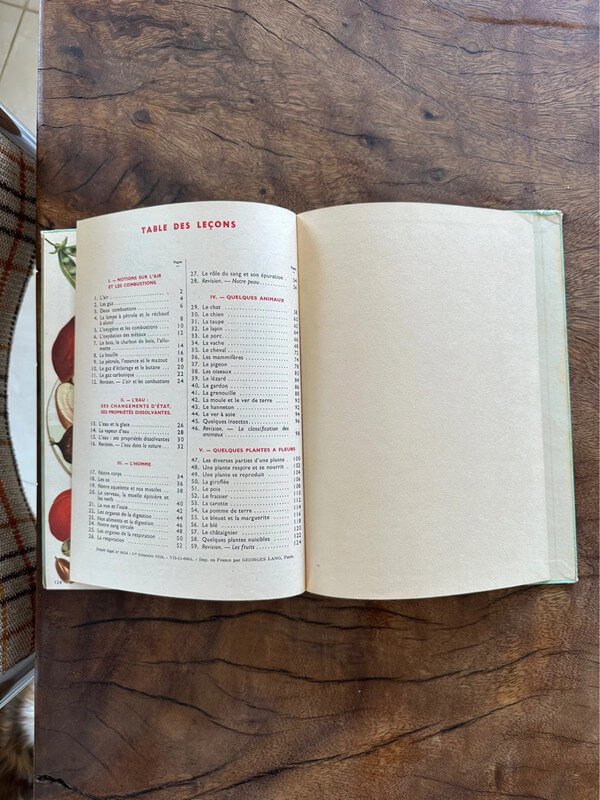 TABLE DES LEÇONS
Pages
I. — NOTIONS SUR L'AIR
ET LES COMBUSTIONS.
1. L'air 2
2. Les gaz 4
3. Deux combustions 6
4. La lampe à pétrole et le réchaud
à alcool 8
5. L'oxygène et les combustions 10
6. L'oxydation des métaux 12
7. Le bois, le charbon de bois, l'allu-
mette 14
8. La houille 16
9. Le pétrole, l'essence et le mazout 18
10. Le gaz d'éclairage et le butane 20
11. Le gaz carbonique 22
12. Revision. — L'air et les combustions 24
II. — L'EAU :
SES CHANGEMENTS D'ÉTAT,
SES PROPRIÉTÉS DISSOLVANTES.
13. L'eau et la glace 26
14. La vapeur d'eau 28
15. L'eau : ses propriétés dissolvantes 30
16. Revision. — L'eau dans la nature 32
III. — L'HOMME
17. Notre corps 34
18. Les os 36
19. Notre squelette et nos muscles 38
20. Le cerveau, la moelle épinière et
les nerfs 40
21. La vue et l'ouïe 42
22. Les organes de la digestion 44
23. Nos aliments et la digestion 46
24. Notre sang circule 48
25. Les organes de la respiration 50
26. La respiration 52
Pages
27. Le rôle du sang et son épuration 54
28. Revision. — Notre peau 56
IV. — QUELQUES ANIMAUX
29. Le chat
30. Le chien
31. La taupe
32. Le lapin
33. Le porc
34. La vache
35. Le cheval
36. Les mammifères
37. Le pigeon
38. Les oiseaux
39. Le lézard
40. Le gardon
41. La grenouille
42. La moule et le ver de terre
43. Le hanneton
44. Le ver à soie
45. Quelques insectes 96
46. Revision. — La classification des
animaux 98
V. — QUELQUES PLANTES A FLEURS
47. Les diverses parties d'une plante 100
48. Une plante respire et se nourrit 102
49. Une plante se reproduit 104
50. La giroflée 106
51. Le pois 108
52. Le fraisier 110
53. La carotte 112
54. La pomme de terre 114
55. Le bleuet et la marguerite 116
56. Le blé 118
57. Le châtaignier 120
58. Quelques plantes nuisibles 122
59. Revision. — Les fruits 124
Imp. en France par GEORGES LANG, Paris
124